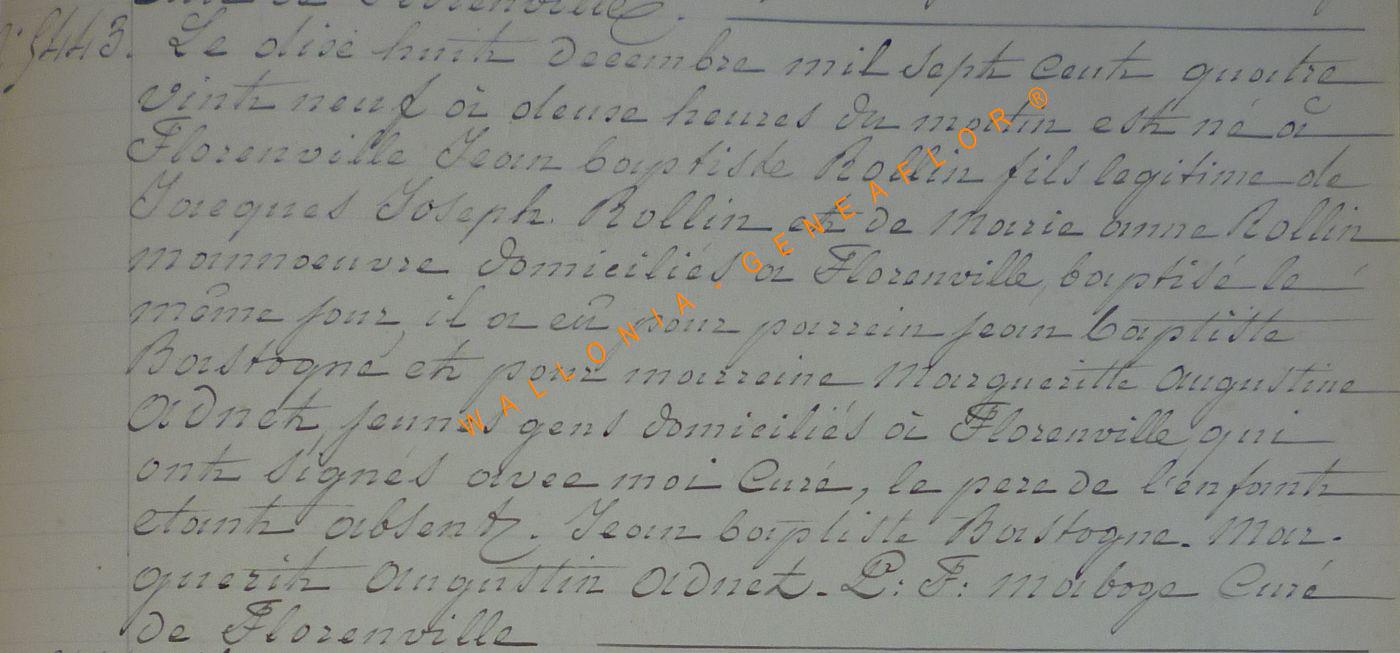 de Florenville.
5443. Le dixe huit Decembre mil sept Cent quatre
vint neuf à deuxe heures du matin est né à
Florenville Jean baptiste Rollin fils legitime de
Jacques Joseph Rollin et de Marie anne Rollin
mannoeuvre domiciliés à Florenville, baptisé le
même jour, il a eû pour parrein jean baptiste
Bastogne et pour marreine Margueritte augustine
adnet, jeunes gens domiciliés à Florenville qui
ont signés avec moi Curé, le pere de l'enfant
etant absent. Jean baptiste Bastogne. Mar-
guerit Augustin adnet. P: F: Maboge Curé
de Florenville
WALLONIA.GENEAFLOR ®